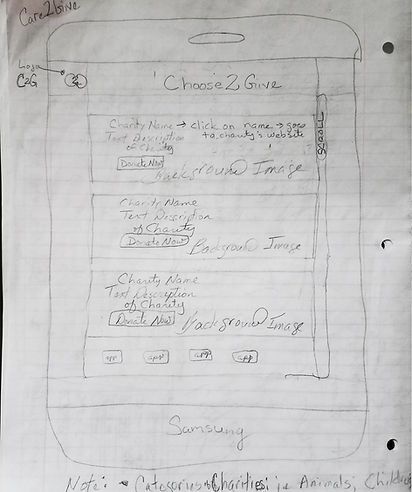 Care2Give
Logo
C2G
C2G
Choose 2 Give
SCROLL
Charity Name → click on name → goes
to charity's website
Text Description
of Charity
Donate Now
Background Image
Charity Name
Text Description
of Charity
Donate Now
Background Image
Charity Name
Text Description
of Charity
Donate Now
Background Image
app
app
app
app
Samsung
Note: Categories Charities i.e Animals,